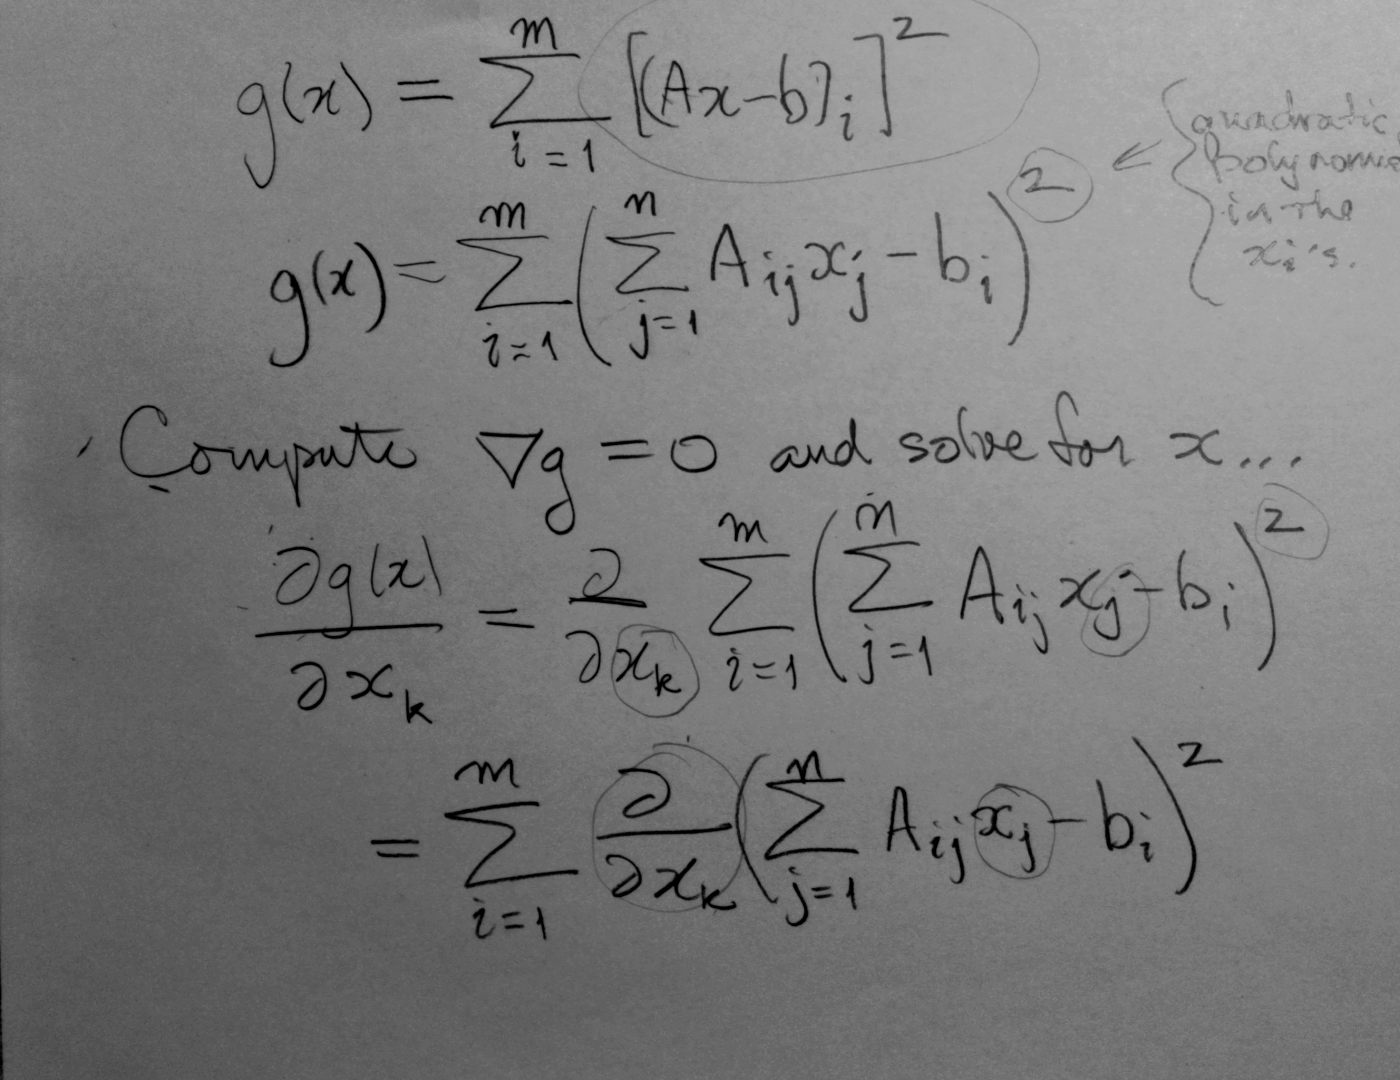 g(x) = ∑_{i=1}^{m} [(Ax-b)_i]^2
g(x) = ∑_{i=1}^{m} (∑_{j=1}^{n} A_{ij} x_j - b_i)^2
← { quadratic
Polynomial
in the
x_i's.
Compute ∇g = 0 and solve for x...
∂g(x)/∂x_k = ∂/∂x_k ∑_{i=1}^{m} (∑_{j=1}^{n} A_{ij} x_j - b_i)^2
= ∑_{i=1}^{m} ∂/∂x_k (∑_{j=1}^{n} A_{ij} x_j - b_i)^2